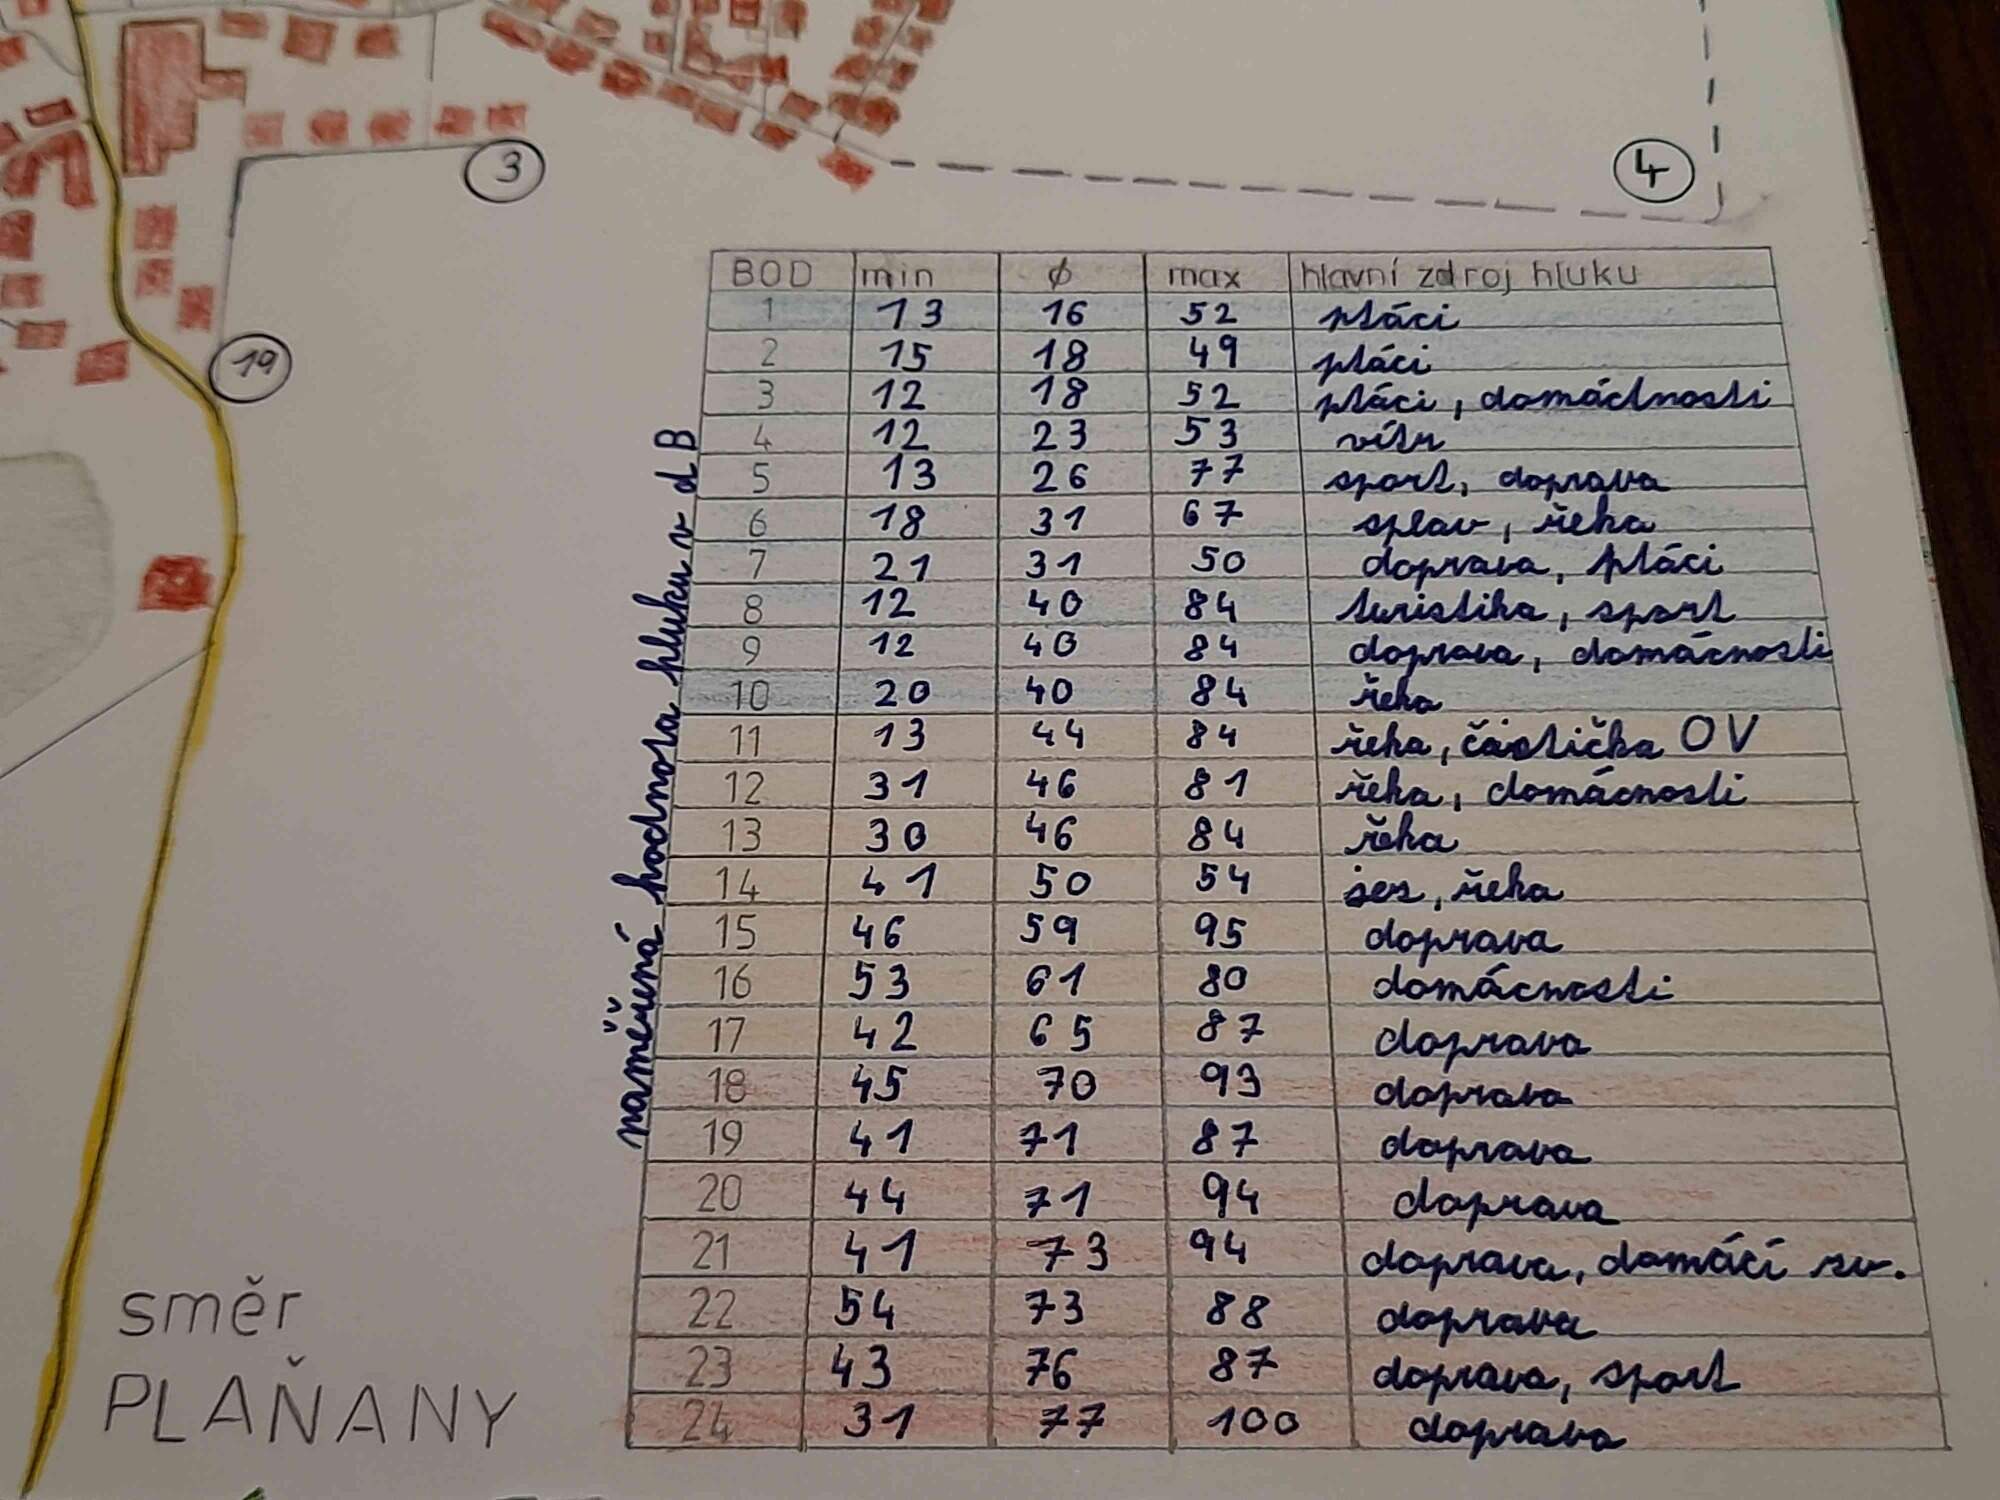 3
4
19
naměřená hodnota hluku v dB
BOD min ø max hlavní zdroj hluku
1 13 16 52 ptáci
2 15 18 49 ptáci
3 12 18 52 ptáci, domáctnosti
4 12 23 53 vítr
5 13 26 77 sport, doprava
6 18 31 67 splav, řeka
7 21 31 50 doprava, ptáci
8 12 40 84 turistika, sport
9 12 40 84 doprava, domácnosti
10 20 40 84 řeka
11 13 44 84 řeka, částička OV
12 31 46 81 řeka, domácnosti
13 30 46 84 řeka
14 41 50 54 jez, řeka
15 46 59 95 doprava
16 53 61 80 domácnosti
17 42 65 87 doprava
18 45 70 93 doprava
19 41 71 87 doprava
20 44 71 94 doprava
21 41 73 94 doprava, domácí zv.
22 54 73 88 doprava
23 43 76 87 doprava, sport
24 31 77 100 doprava
směr
PLAŇANY